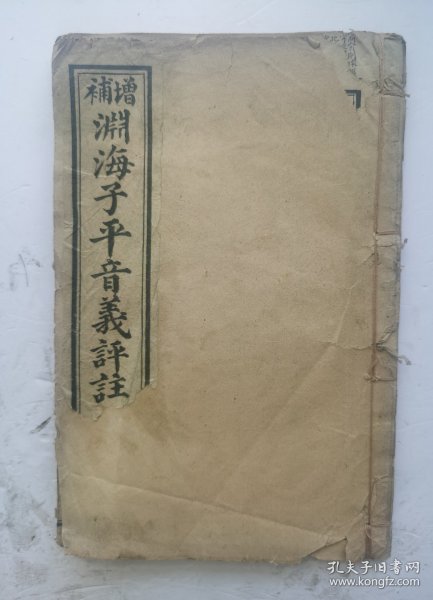 增補
淵海子平音義評註
孔夫子旧书网
www.kongfz.com